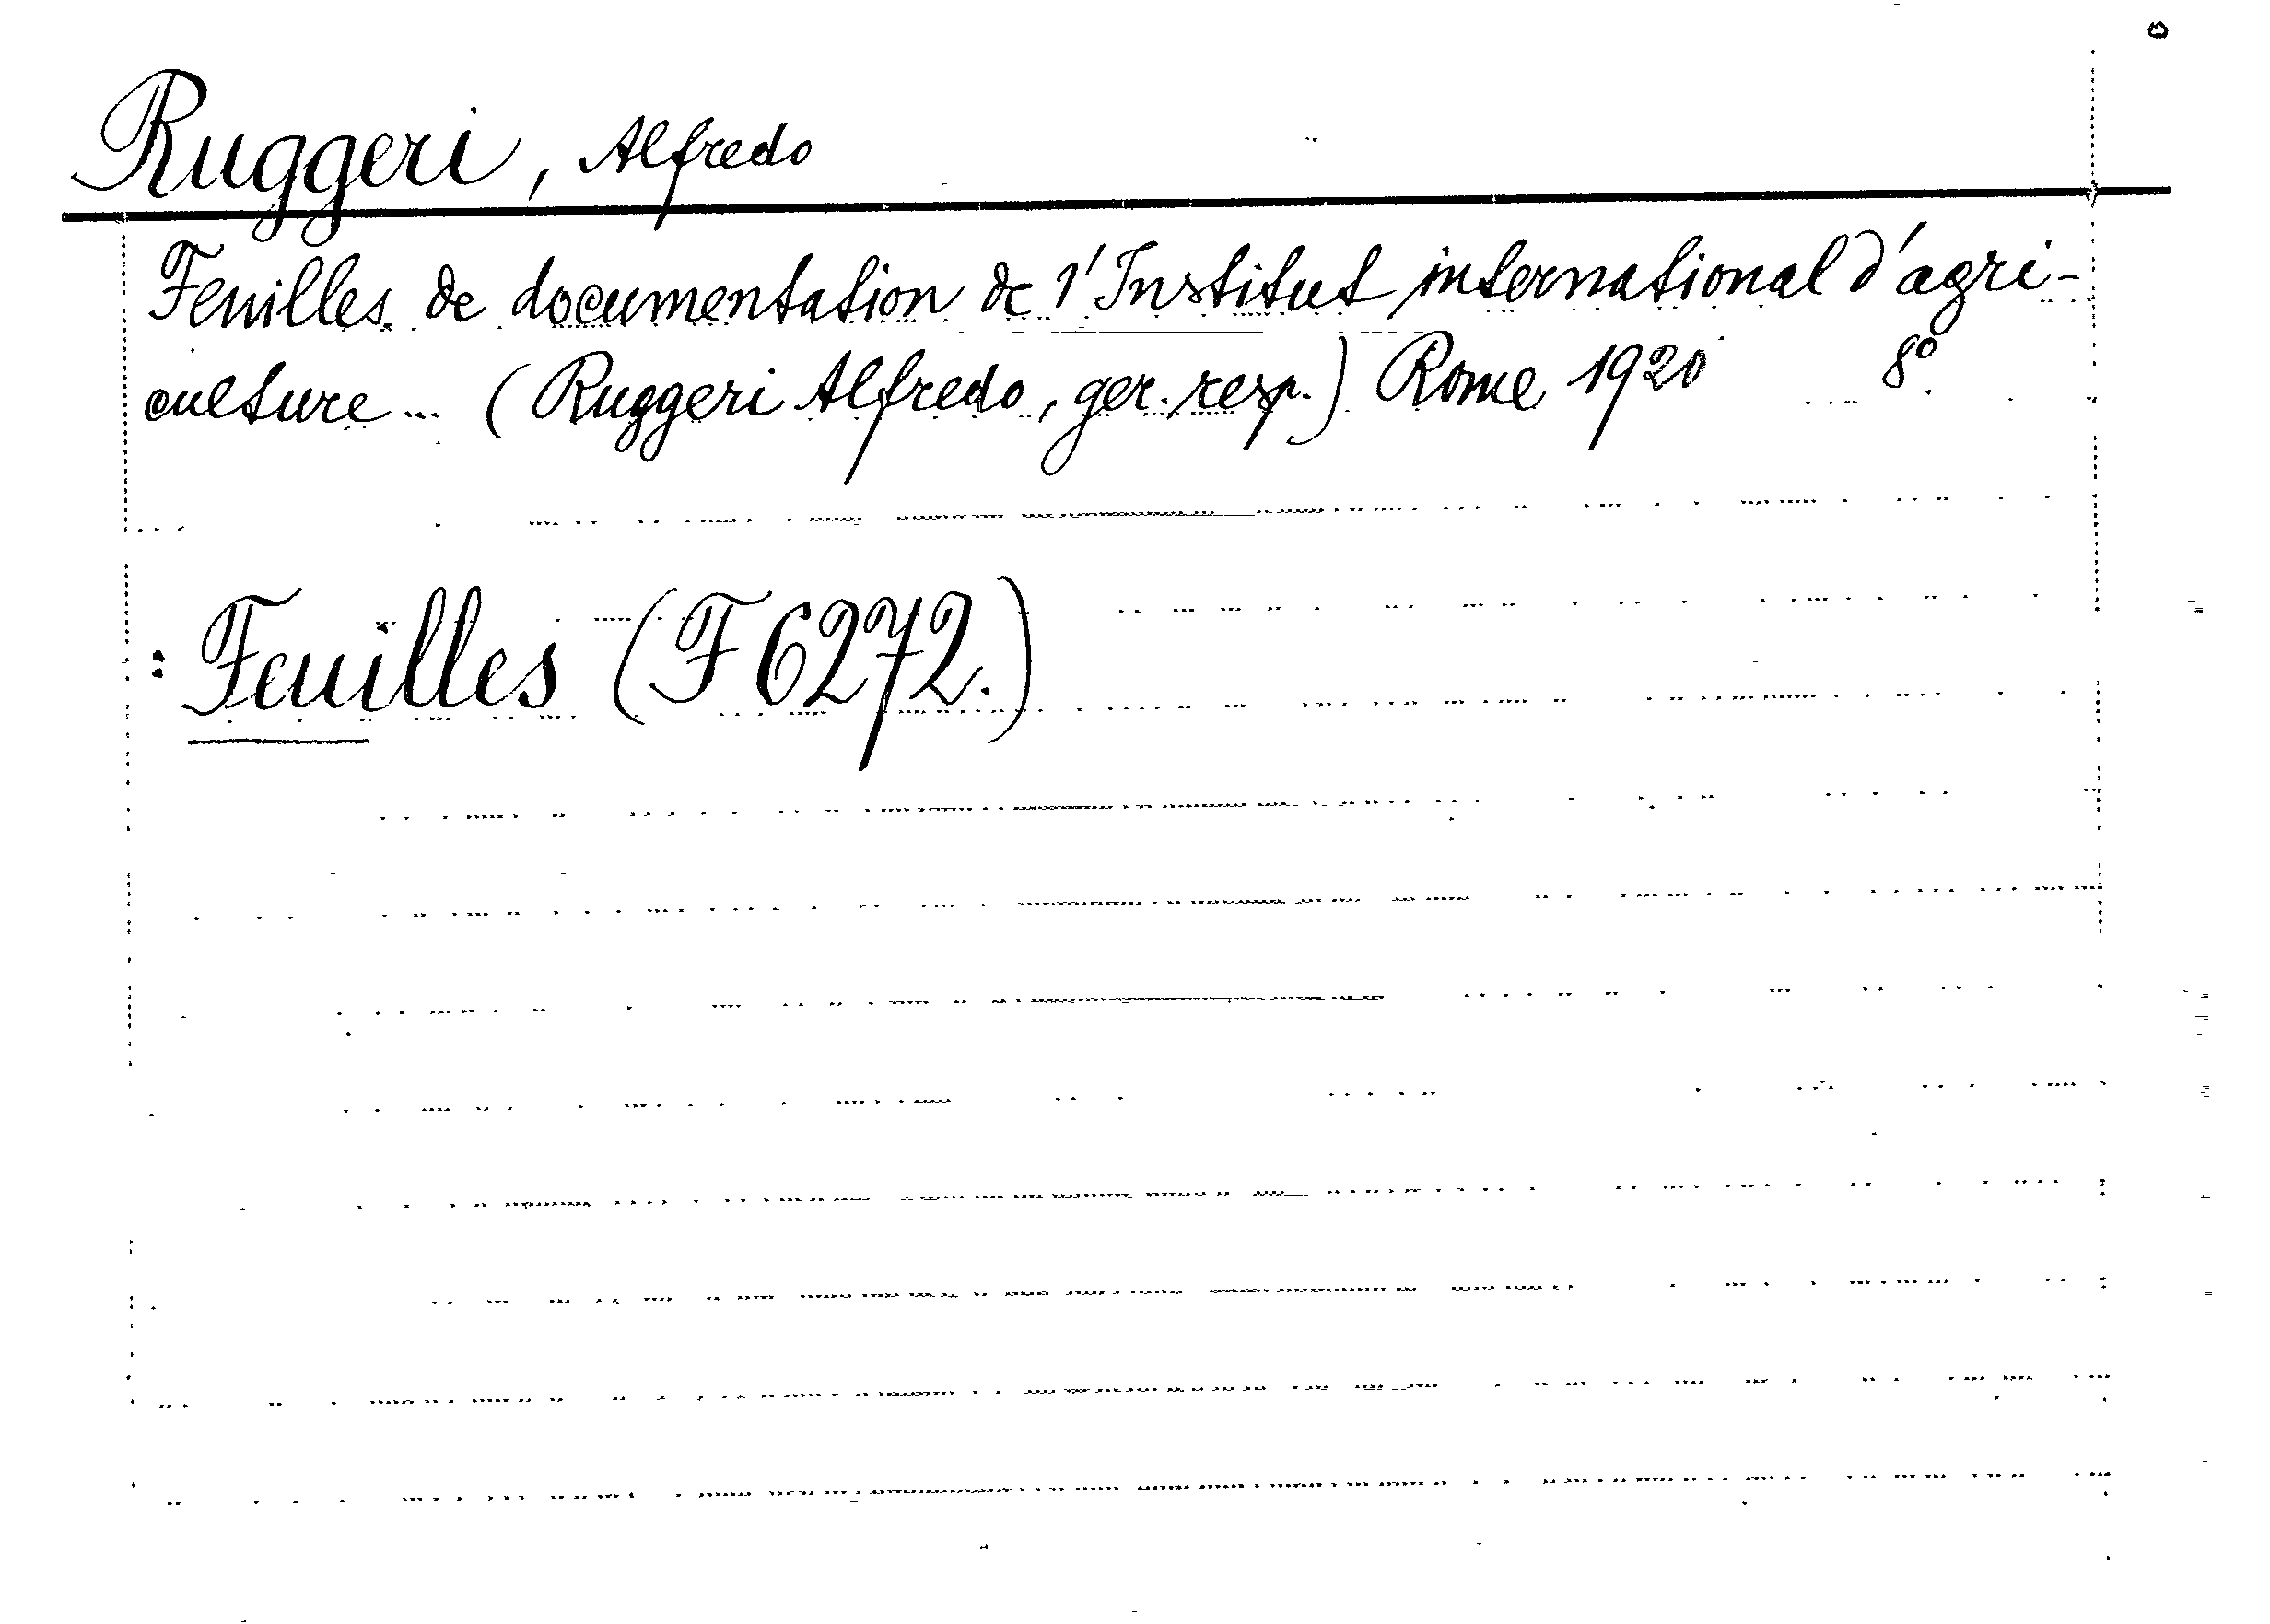 Ruggeri, Alfredo
Feuilles de documentation de l'Institut international d'agri-
culture ... (Ruggeri Alfredo, ger. resp.) Rome 1920 8°.
: Feuilles (F 6272.)